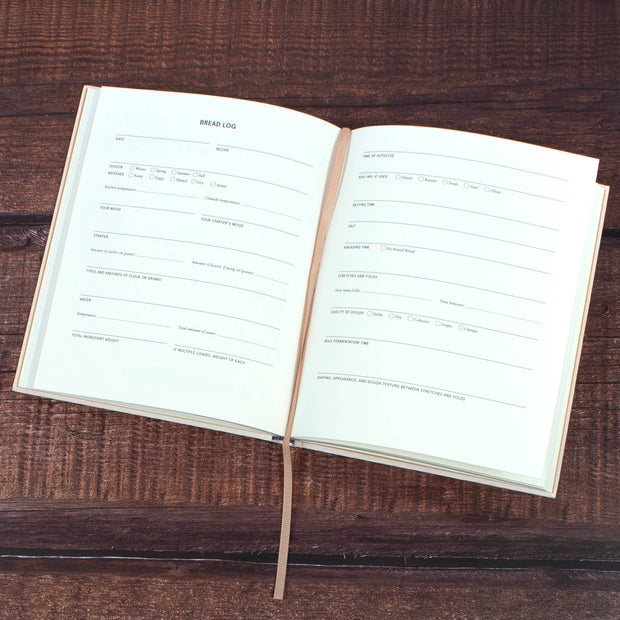 BREAD LOG
DATE
RECIPE
SEASON Winter Spring Summer Fall
WEATHER Rainy Foggy Humid Dry
Kitchen temperature:
Outside temperature:
YOUR MOOD
YOUR STARTER'S MOOD
STARTER
Amount of starter (in grams):
Amount of leaven, if using (in grams):
TYPES AND AMOUNTS OF FLOUR (IN GRAMS)
WATER
Temperature:
Total amount of water:
TOTAL INGREDIENT WEIGHT
IF MULTIPLE LOAVES, WEIGHT OF EACH
TIME OF AUTOLYZE
ADD-INS, IF USED Cheese Raisins Seeds Nuts Olives
RESTING TIME
SALT
KNEADING TIME No-Knead Bread
STRETCHES AND FOLDS
How many folds:
Time between:
QUALITY OF DOUGH Sticky Dry Cohesive Soupy Clumpy
BULK FERMENTATION TIME
SHAPING, APPEARANCE, AND DOUGH TEXTURE BETWEEN STRETCHES AND FOLDS